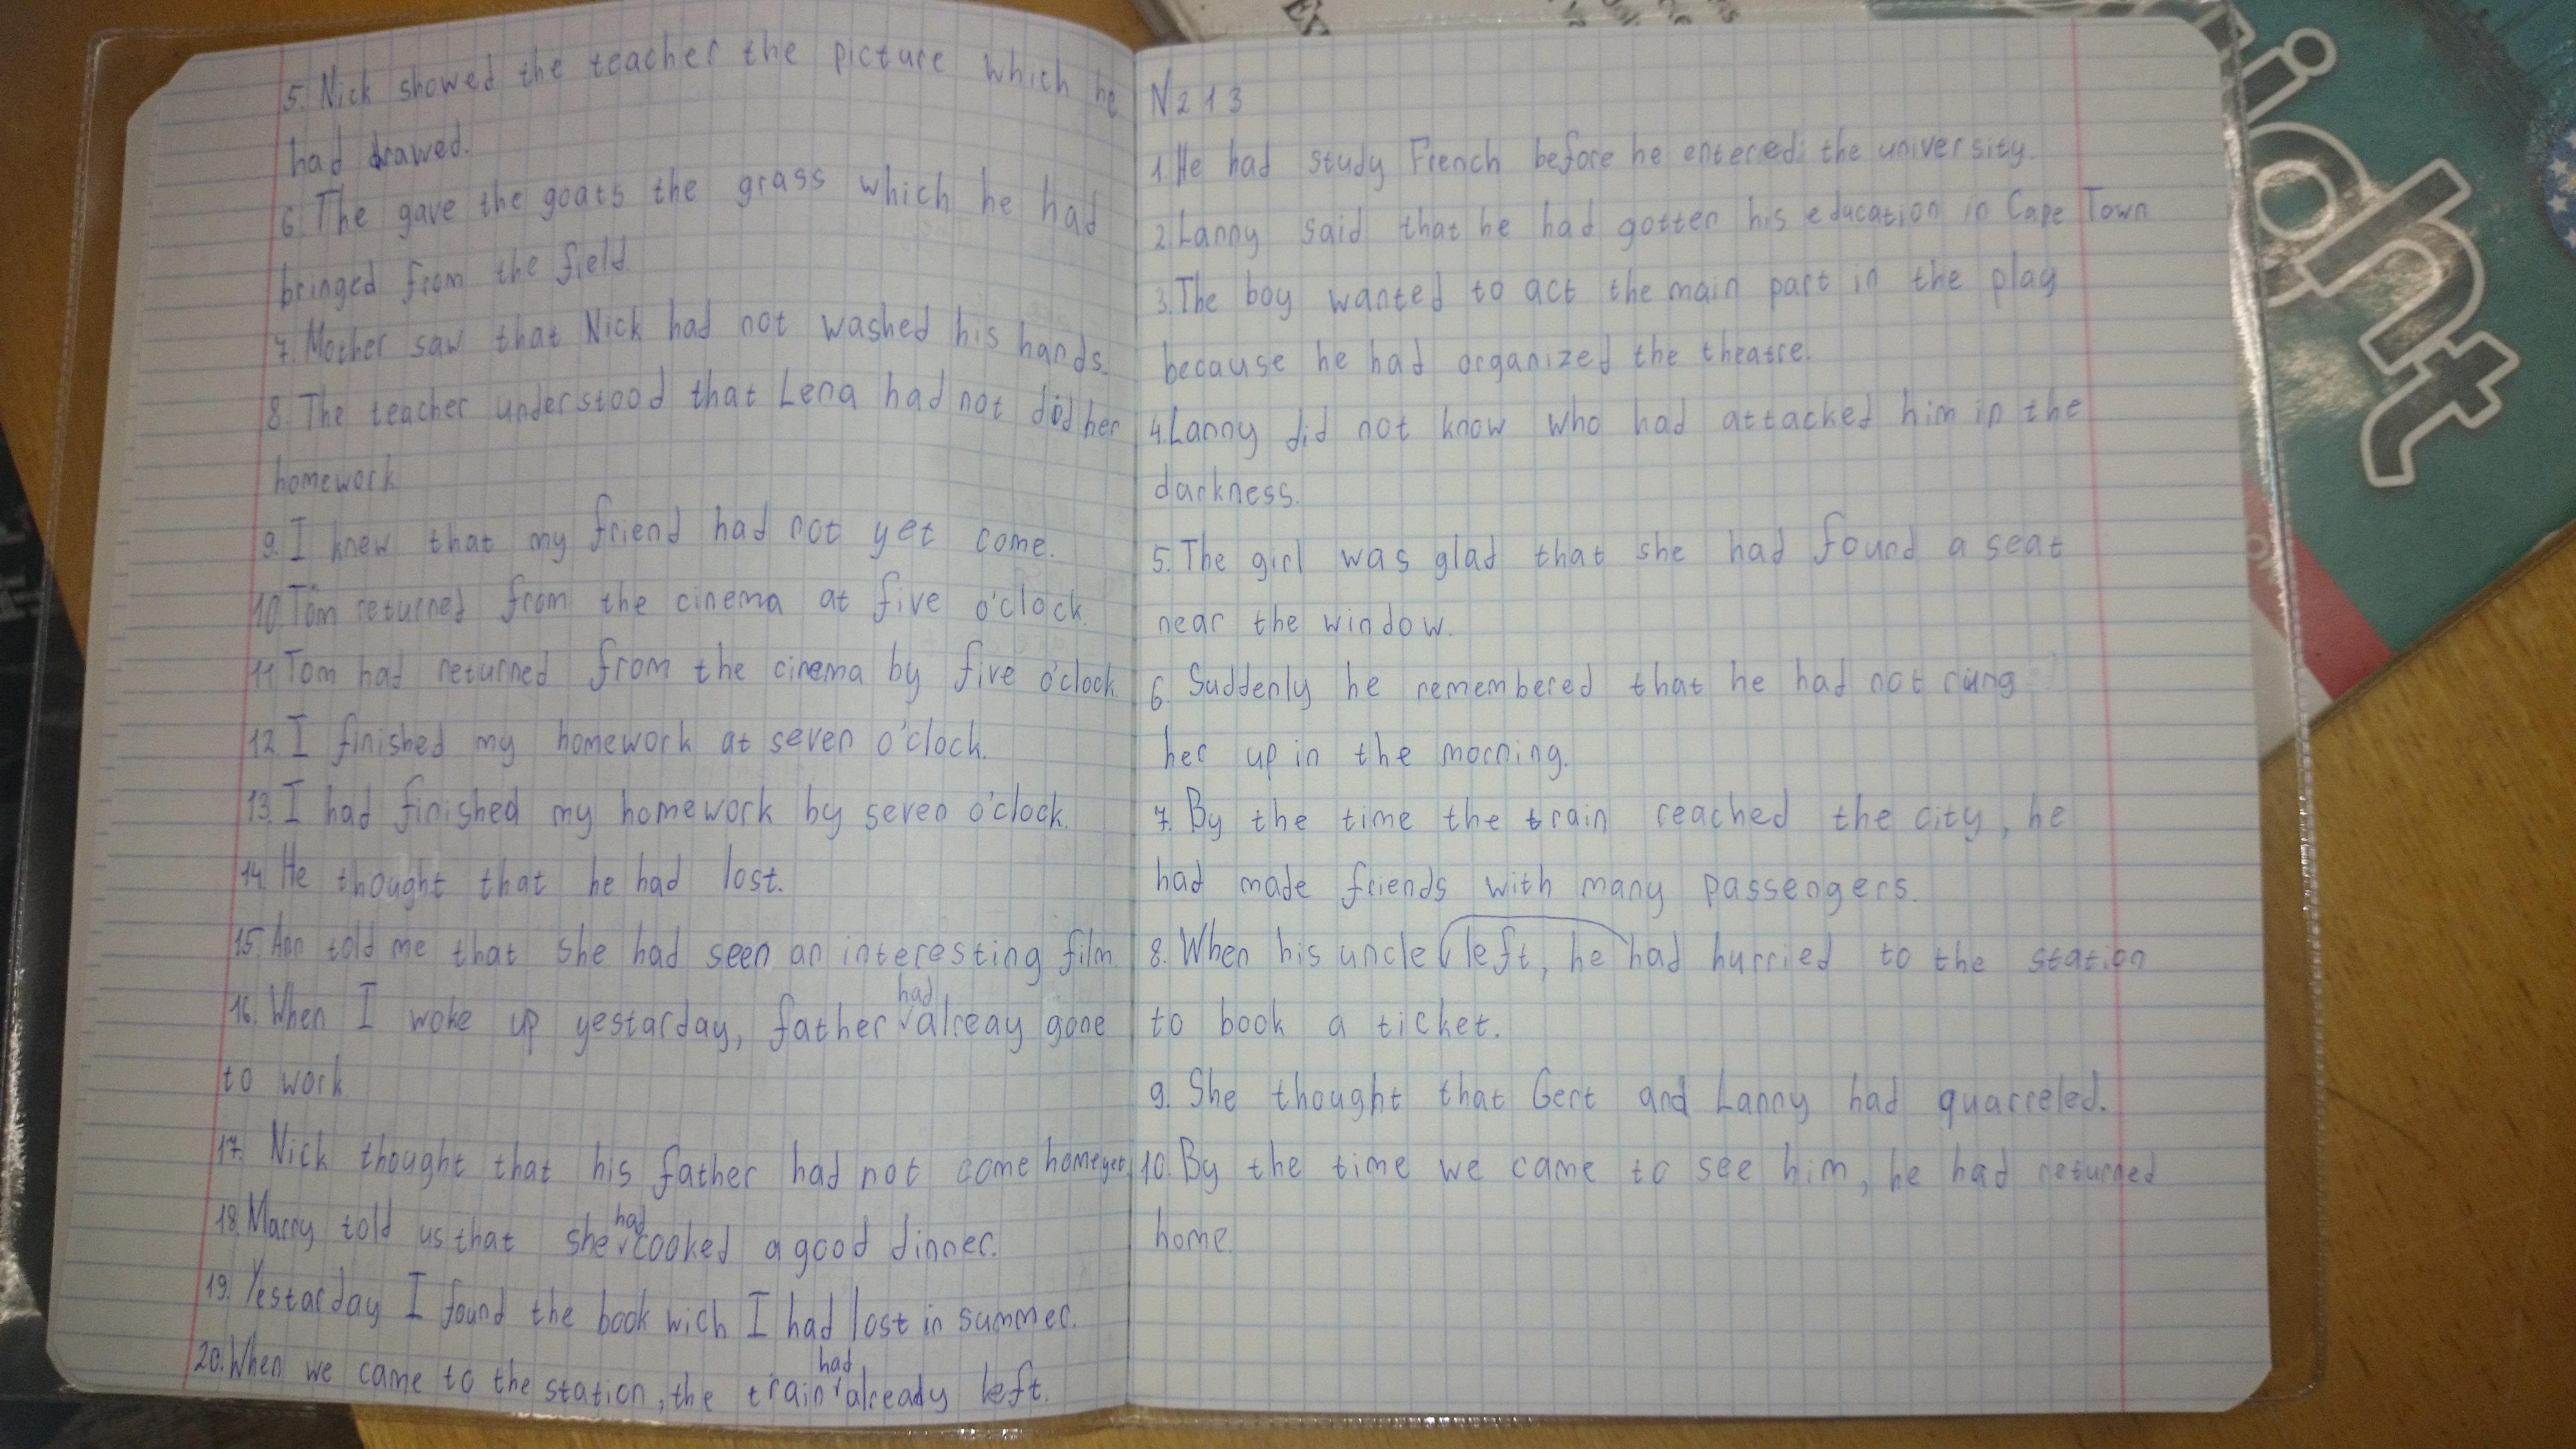 5. Nick showed the teacher the picture which he
had drawed.
6. The gave the goats the grass which he had
bringed from the field.
7. Mother saw that Nick had not washed his hands.
8. The teacher understood that Lena had not did her
homework
9. I knew that my friend had not yet come.
10. Tom returned from the cinema at five o'clock.
11 Tom had returned from the cinema by five o'clock.
12. I finished my homework at seven o'clock.
13. I had finished my homework by seven o'clock.
14. He thought that he had lost.
15. Ann told me that she had seen an interesting film.
16. When I woke up yestarday, father had alreay gone
to work.
17. Nick thought that his father had not come home yet.
18. Marry told us that she had cooked a good dinner.
19. Yestarday I found the book wich I had lost in summer.
20. When we came to the station, the train had already left.
N213
1. He had study French before he entered the university.
2. Lanny said that he had gotten his education in Cape Town
3. The boy wanted to act the main part in the play
because he had organized the theatre.
4. Lanny did not know who had attacked him in the
darkness.
5. The girl was glad that she had found a seat
near the window.
6. Suddenly he remembered that he had not rung
her up in the morning.
7. By the time the train reached the city, he
had made friends with many passengers.
8. When his uncle left, he had hurried to the station
to book a ticket.
9. She thought that Gert and Lanny had quarreled.
10. By the time we came to see him, he had returned
home.
ight